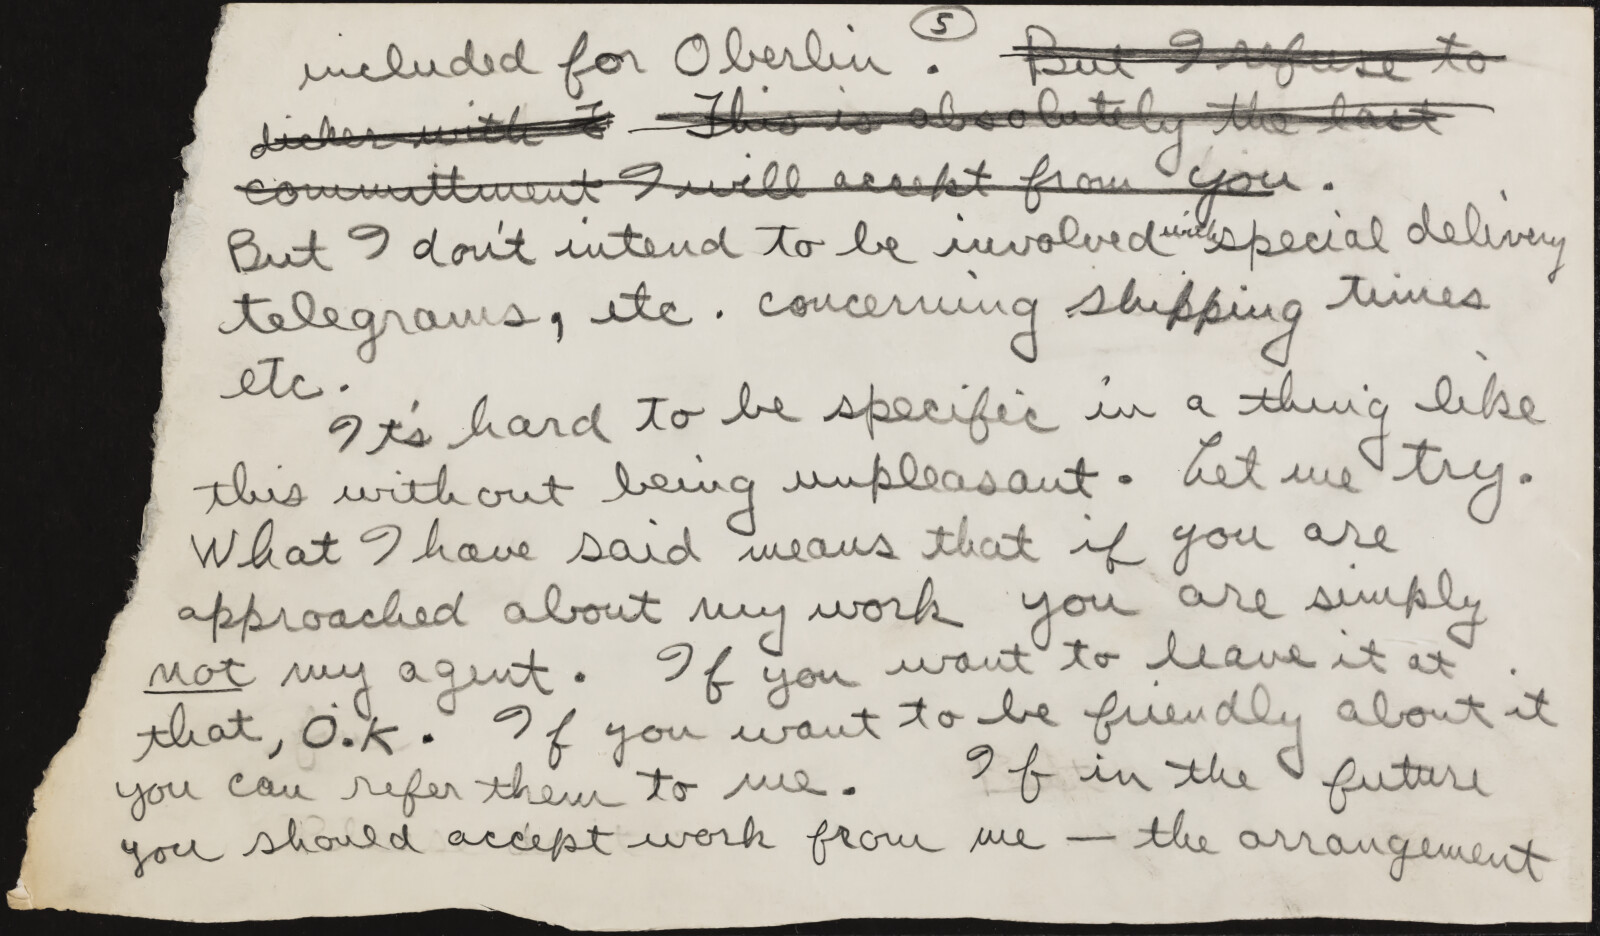 5
included for Oberlin. But I refuse to
dicker with I This is absolutely the last
committment I will accept from you.
But I don't intend to be involved with special delivery
telegrams, etc. concerning shipping times
etc.
It's hard to be specific in a thing like
this without being unpleasant. Let me try.
What I have said means that if you are
approached about my work you are simply
not my agent. If you want to leave it at
that, O.K. If you want to be friendly about it
you can refer them to me. If in the future
you should accept work from me — the arrangement